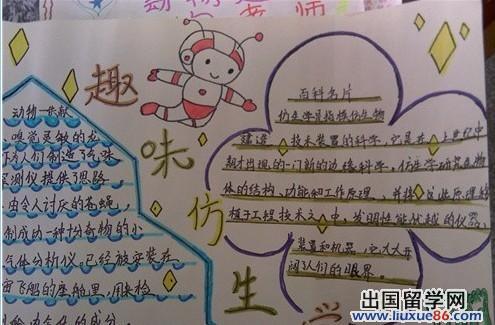 趣
味
仿
生
动物一族献
嗅觉灵敏的龙
人们制造了气味
测仪提供了思路
由令人讨厌的苍蝇,
制成功一种十分奇物的小
气体分析仪。已经被安装在
宙飞船的座舱里,用来检
百科名片
仿生学是指模仿生物
建造技术装置的科学,它是在上世纪中
期才出现的一门新的边缘科学。仿生学研究生物
体的结构、功能和工作原理,并将这些原理移
植于工程技术之中,发明性能优越的仪器、
装置和机器,它大大开
阔了人们的眼界。
出国留学网
www.liuxue86.com